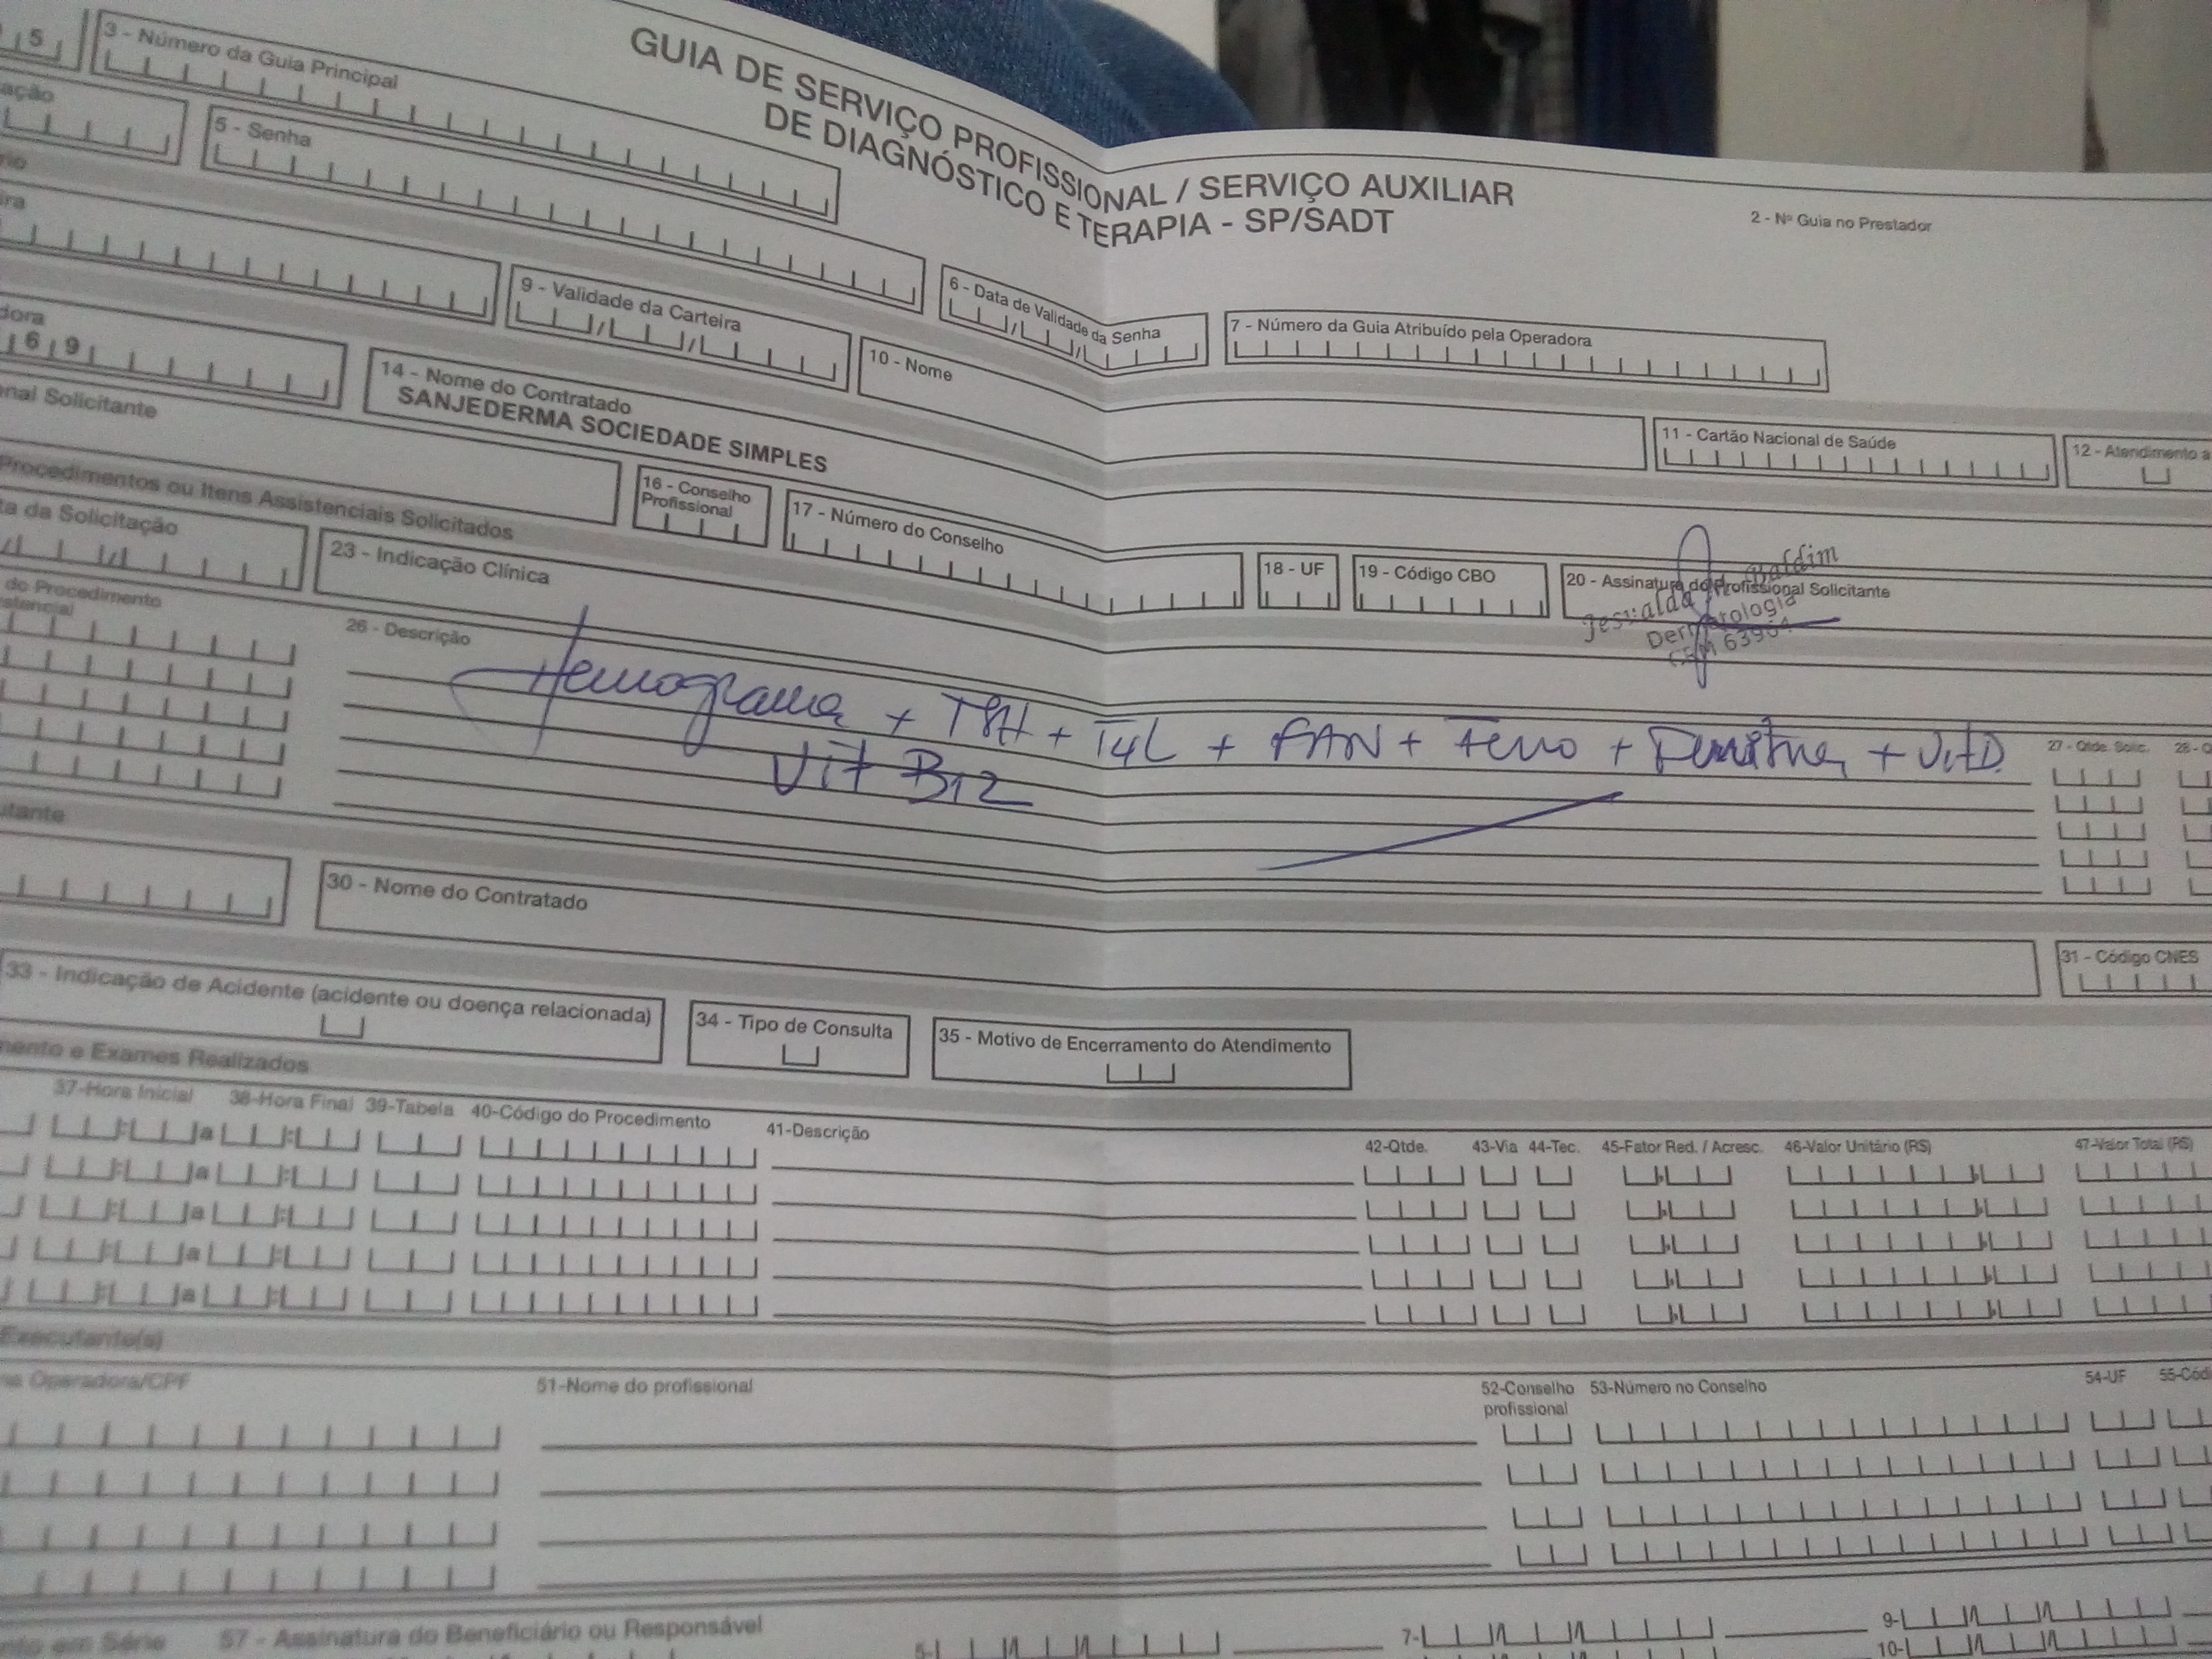 5
3 - Número da Guia Principal
GUIA DE SERVIÇO PROFISSIONAL / SERVIÇO AUXILIAR
DE DIAGNÓSTICO E TERAPIA - SP/SADT
2 - Nº Guia no Prestador
5 - Senha
6 - Data de Validade da Senha
7 - Número da Guia Atribuído pela Operadora
9 - Validade da Carteira
10 - Nome
11 - Cartão Nacional de Saúde
12 - Atendimento a
69
14 - Nome do Contratado
SANJEDERMA SOCIEDADE SIMPLES
Solicitante
16 - Conselho
Profissional
17 - Número do Conselho
18 - UF
19 - Código CBO
20 - Assinatura do Profissional Solicitante
Baldim
Dermatologia
Procedimentos ou Itens Assistenciais Solicitados
da Solicitação
23 - Indicação Clínica
do Procedimento
26 - Descrição
27 - Qtde. Solic.
28 - Q
Hemograma + TSH + T4L + FAN + Ferro + Ferritina + Vit D.
Vit B12
30 - Nome do Contratado
31 - Código CNES
33 - Indicação de Acidente (acidente ou doença relacionada)
34 - Tipo de Consulta
35 - Motivo de Encerramento do Atendimento
e Exames Realizados
37-Hora Inicial 38-Hora Final 39-Tabela 40-Código do Procedimento 41-Descrição 42-Qtde. 43-Via 44-Tec. 45-Fator Red. / Acresc. 46-Valor Unitário (R$) 47-Valor Total (R$)
a
a
a
a
a
Executante(s)
Operadora/CPF
51-Nome do profissional
52-Conselho
profissional
53-Número no Conselho
54-UF
em Série
57 - Assinatura do Beneficiário ou Responsável
5-
7-
9-
10-